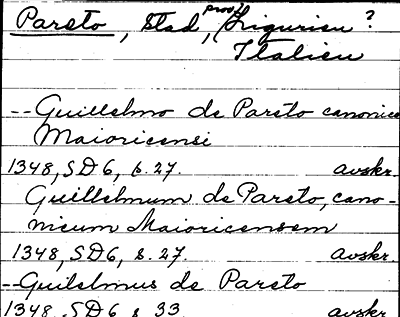 Pareto, Stad, prov. Ligurien ?
Italien
--Guillelmo de Pareto canonico
Maioricensi
1348, SD6, s. 27. avskr.
Guillelmum de Pareto, cano-
nicum Maioricensem
1348, SD6, s. 27. avskr.
--Guilelmus de Pareto
1348, SD6 s 33 avskr